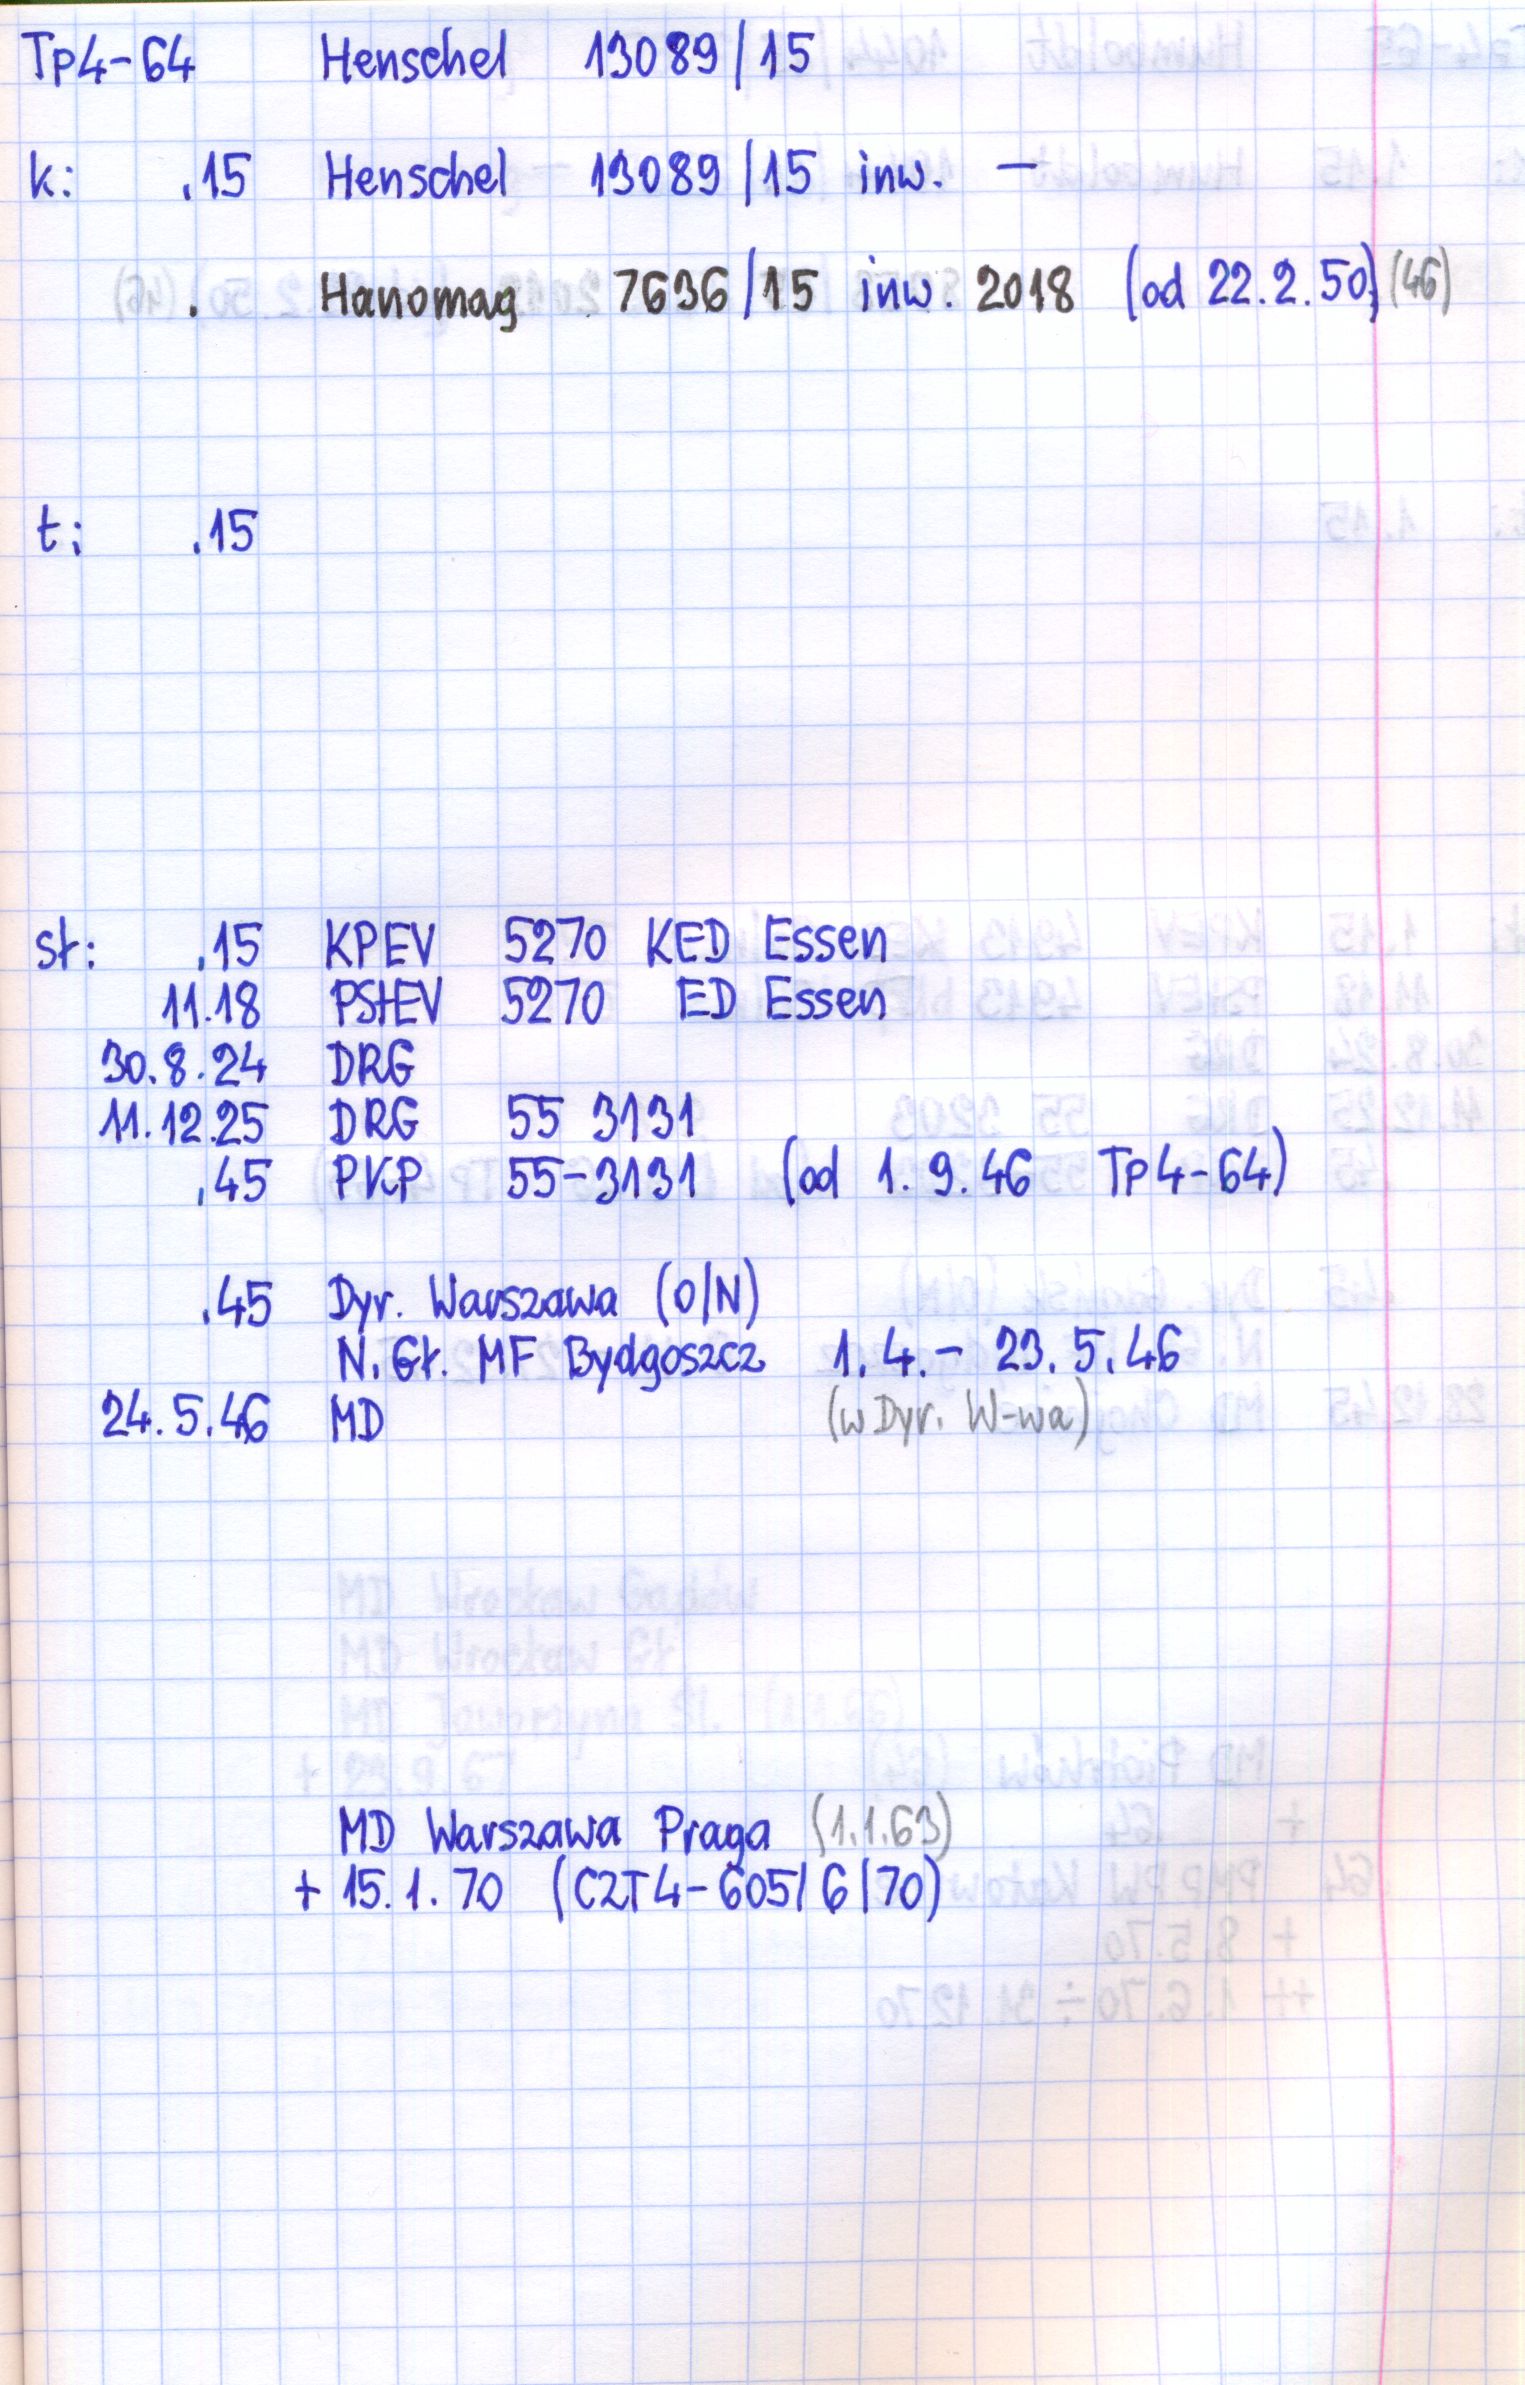 Tp4-64 Henschel 13089/15
k: .15 Henschel 13089/15 inw. -
. Hanomag 7636/15 inw. 2018 (od 22.2.50) (46)
t: .15
st: .15 KPEV 5270 KED Essen
11.18 PStEV 5270 ED Essen
30.8.24 DRG
11.12.25 DRG 55 3131
.45 PKP 55-3131 (od 1.9.46 Tp4-64)
.45 Dyr. Warszawa (O/N)
N.Gł. MF Bydgoszcz 1.4.- 23.5.46
24.5.46 MD (w Dyr. W-wa)
MD Warszawa Praga (1.1.63)
+ 15.1.70 (CZT4-605/6/70)